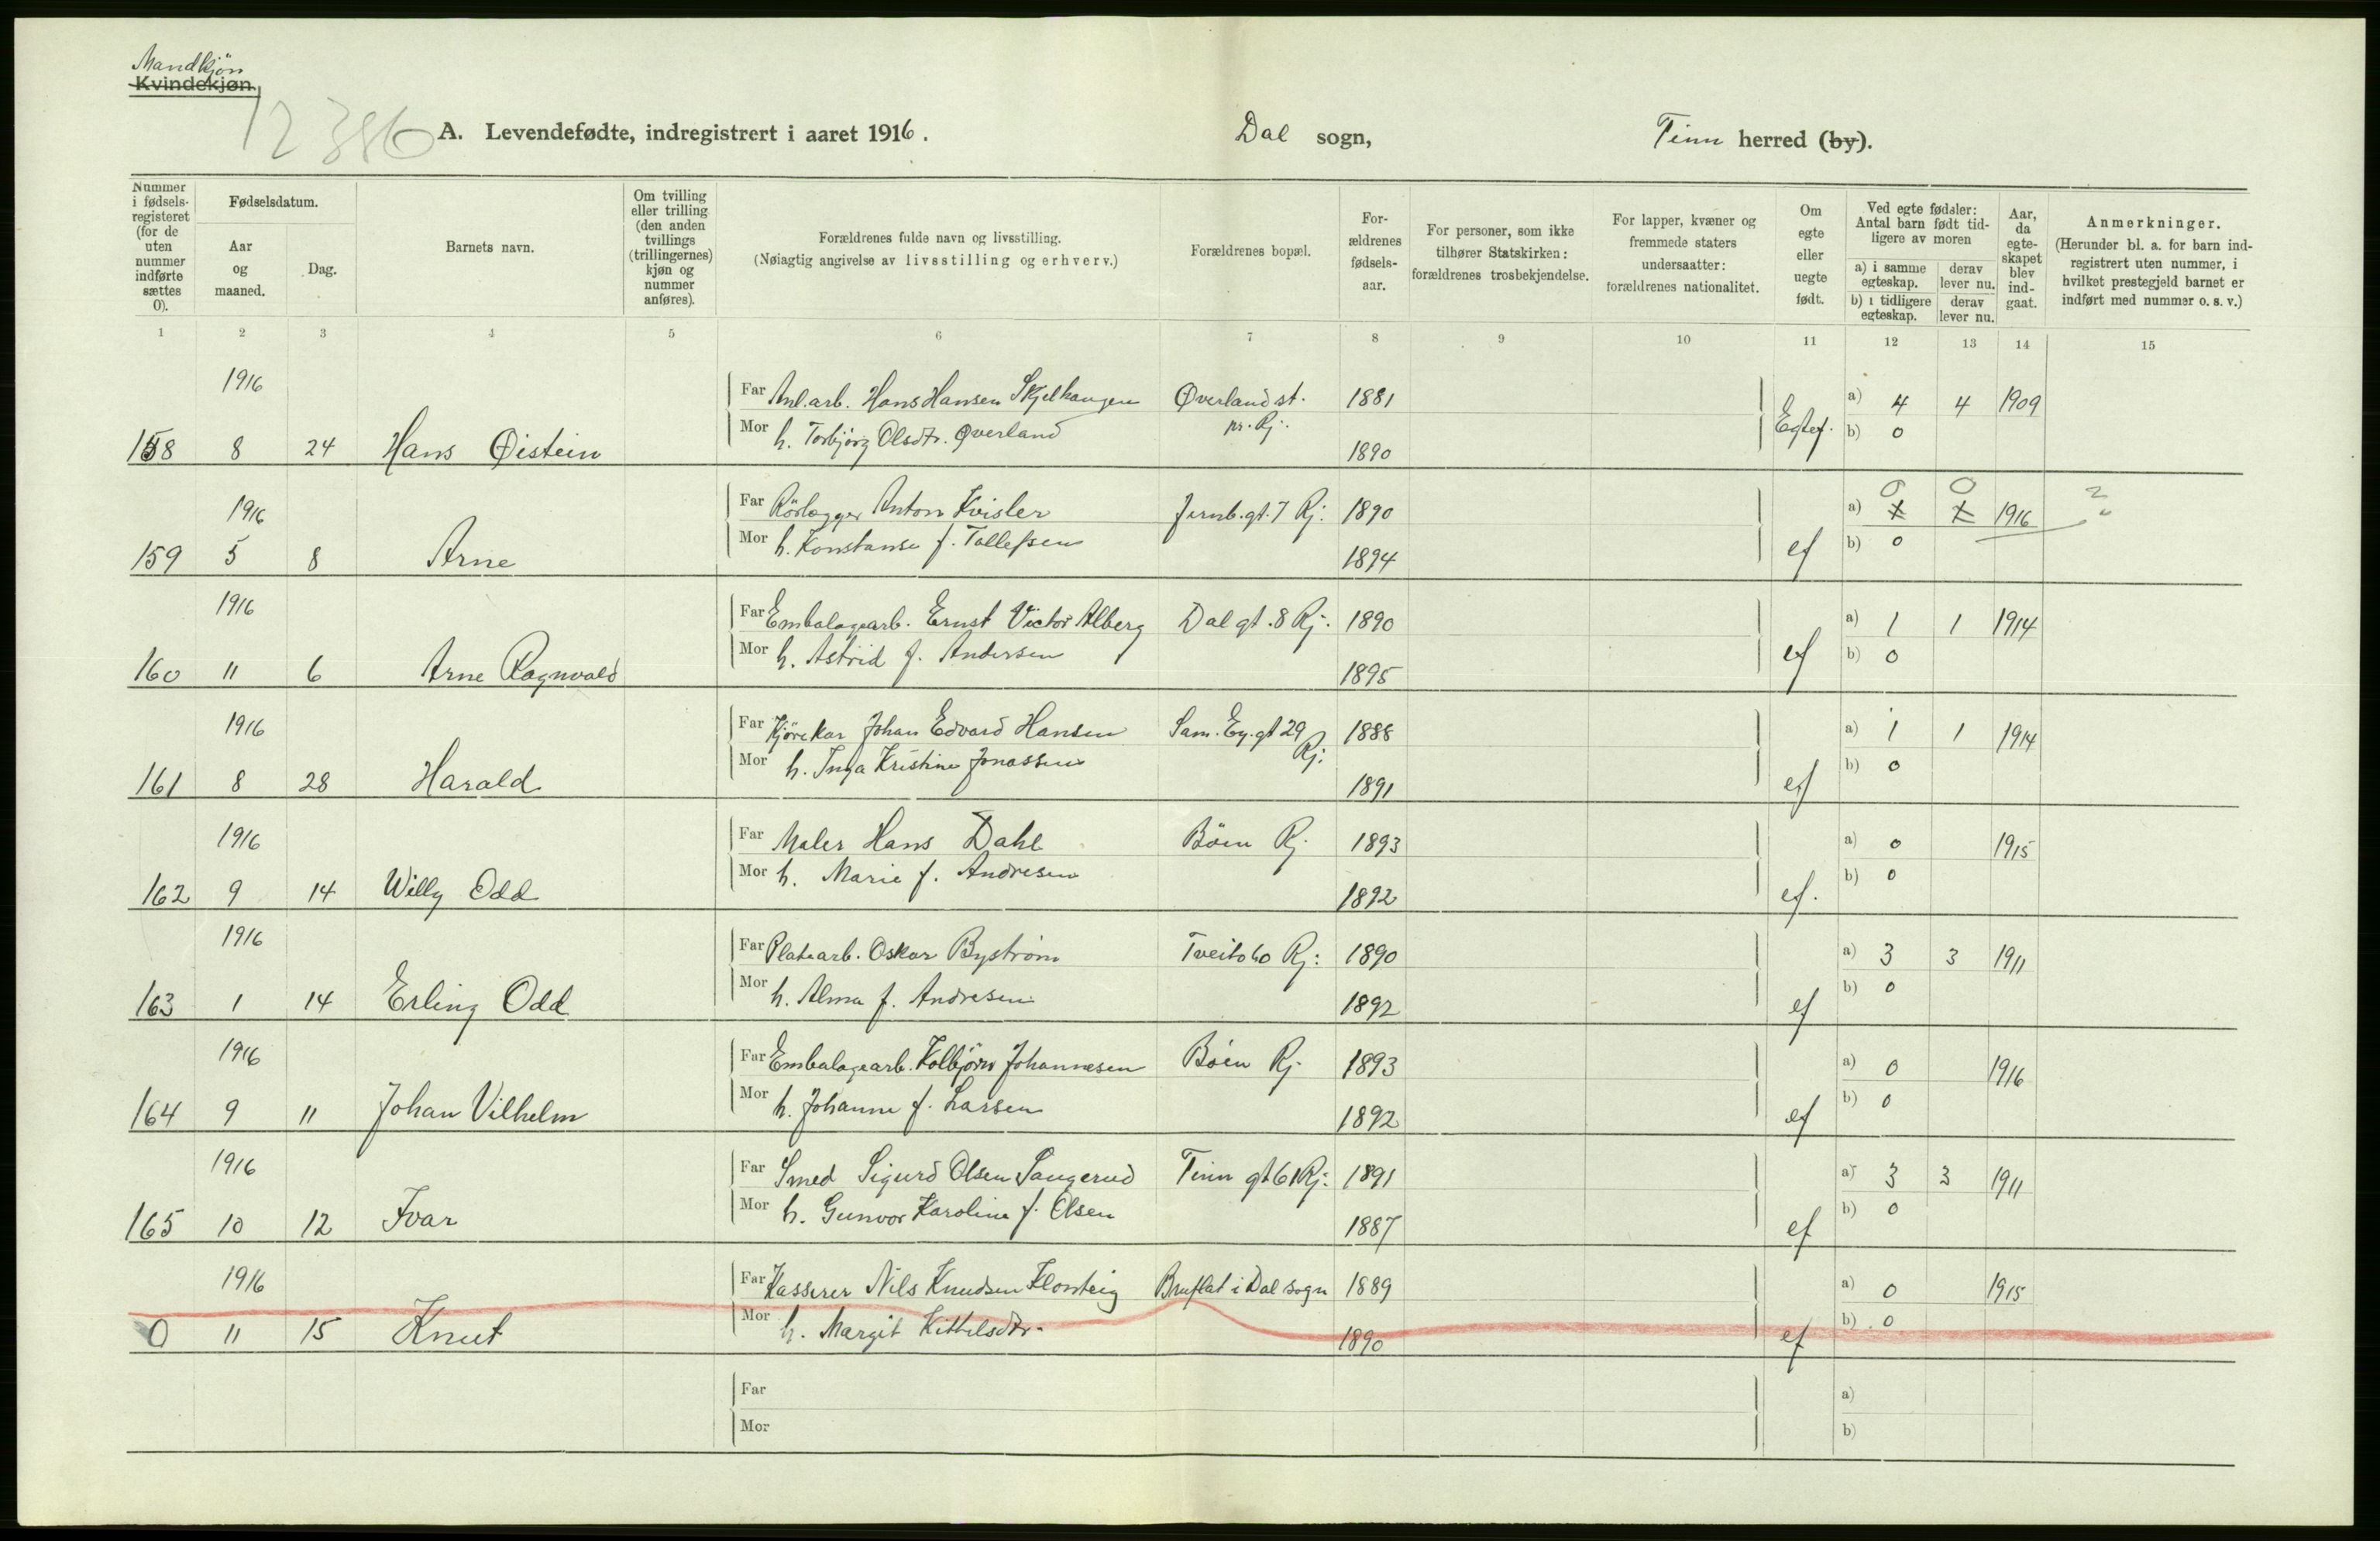 Mandkjøn
Kvindekjøn
12386
A. Levendefødte, indregistrert i aaret 1916. Dal sogn, Tinn herred (by).
Nummer i fødsels-registeret (for de uten nummer indførte sættes 0).
Fødselsdatum.
Aar og maaned.
Dag.
Barnets navn.
Om tvilling eller trilling (den anden tvillings (trillingernes) kjøn og nummer anføres).
Forældrenes fulde navn og livsstilling.
(Nøiagtig angivelse av livsstilling og erhverv.)
Forældrenes bopæl.
For-ældrenes fødsels-aar.
For personer, som ikke tilhører Statskirken: forældrenes trosbekjendelse.
For lapper, kvæner og fremmede staters undersaatter: forældrenes nationalitet.
Om egte eller uegte født.
Ved egte fødsler: Antal barn født tid-ligere av moren
a) i samme egteskap.
derav lever nu.
b) i tidligere egteskap.
derav lever nu.
Aar, da egte-skapet blev ind-gaat.
Anmerkninger.
(Herunder bl. a. for barn ind-registrert uten nummer, i hvilket prestegjeld barnet er indført med nummer o. s. v.)
1 2 3 4 5 6 7 8 9 10 11 12 13 14 15
1916 Far Anl.arb. Hans Hansen Skjelhaugen Øverland st. 1881 a) 4 4 1909
158 8 24 Hans Øistein Mor h. Torbjörg Olsdtr. Øverland pr. Rj. 1890 Egtef. b) 0
1916 Far Rörlægger Anton Kvisler Jernb.gt. 7 Rj. 1890 a) 0 0 1916 ?
159 5 8 Arne Mor h. Konstanse f. Tollefsen 1894 ef b) 0
1916 Far Embalagearb. Ernst Victor Alberg Dal gt. 8 Rj. 1890 a) 1 1 1914
160 11 6 Arne Ragnvald Mor h. Astrid f. Andersen 1895 ef b) 0
1916 Far Kjörekar Johan Edvard Hansen Sam. Ey. gt 29 Rj. 1888 a) 1 1 1914
161 8 28 Harald Mor h. Inga Kristine Jonassen 1891 ef b) 0
1916 Far Maler Hans Dahl Böen Rj. 1893 a) 0 1915
162 9 14 Willy Odd Mor h. Marie f. Andresen 1892 ef. b) 0
1916 Far Platearb. Oskar Byström Tveito 60 Rj: 1890 a) 3 3 1911
163 1 14 Erling Odd Mor h. Alma f. Andresen 1892 ef b) 0
1916 Far Embalagearb. Kolbjörn Johannesen Böen Rj. 1893 a) 0 1916
164 9 11 Johan Vilhelm Mor h. Johanne f. Larsen 1892 ef b) 0
1916 Far Smed Sigurd Olsen Saugerud Tinn gt 61 Rj. 1891 a) 3 3 1911
165 10 12 Ivar Mor h. Gunvor Karoline f. Olsen 1887 ef b) 0
1916 Far Kasserer Nils Knudsen Flonteig Bruflat i Dal sogn 1889 a) 0 1915
0 11 15 Knut Mor h. Margit Kittilsdtr. 1890 ef b) 0
Far a)
Mor b)